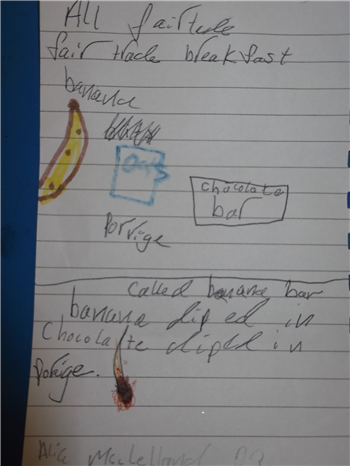 All fairtude
fair trade breakfast
banana
oats
chocolate
bar
Porrige
called banana bar
banana diped in
Chocolate diped in
Porige.
Alice